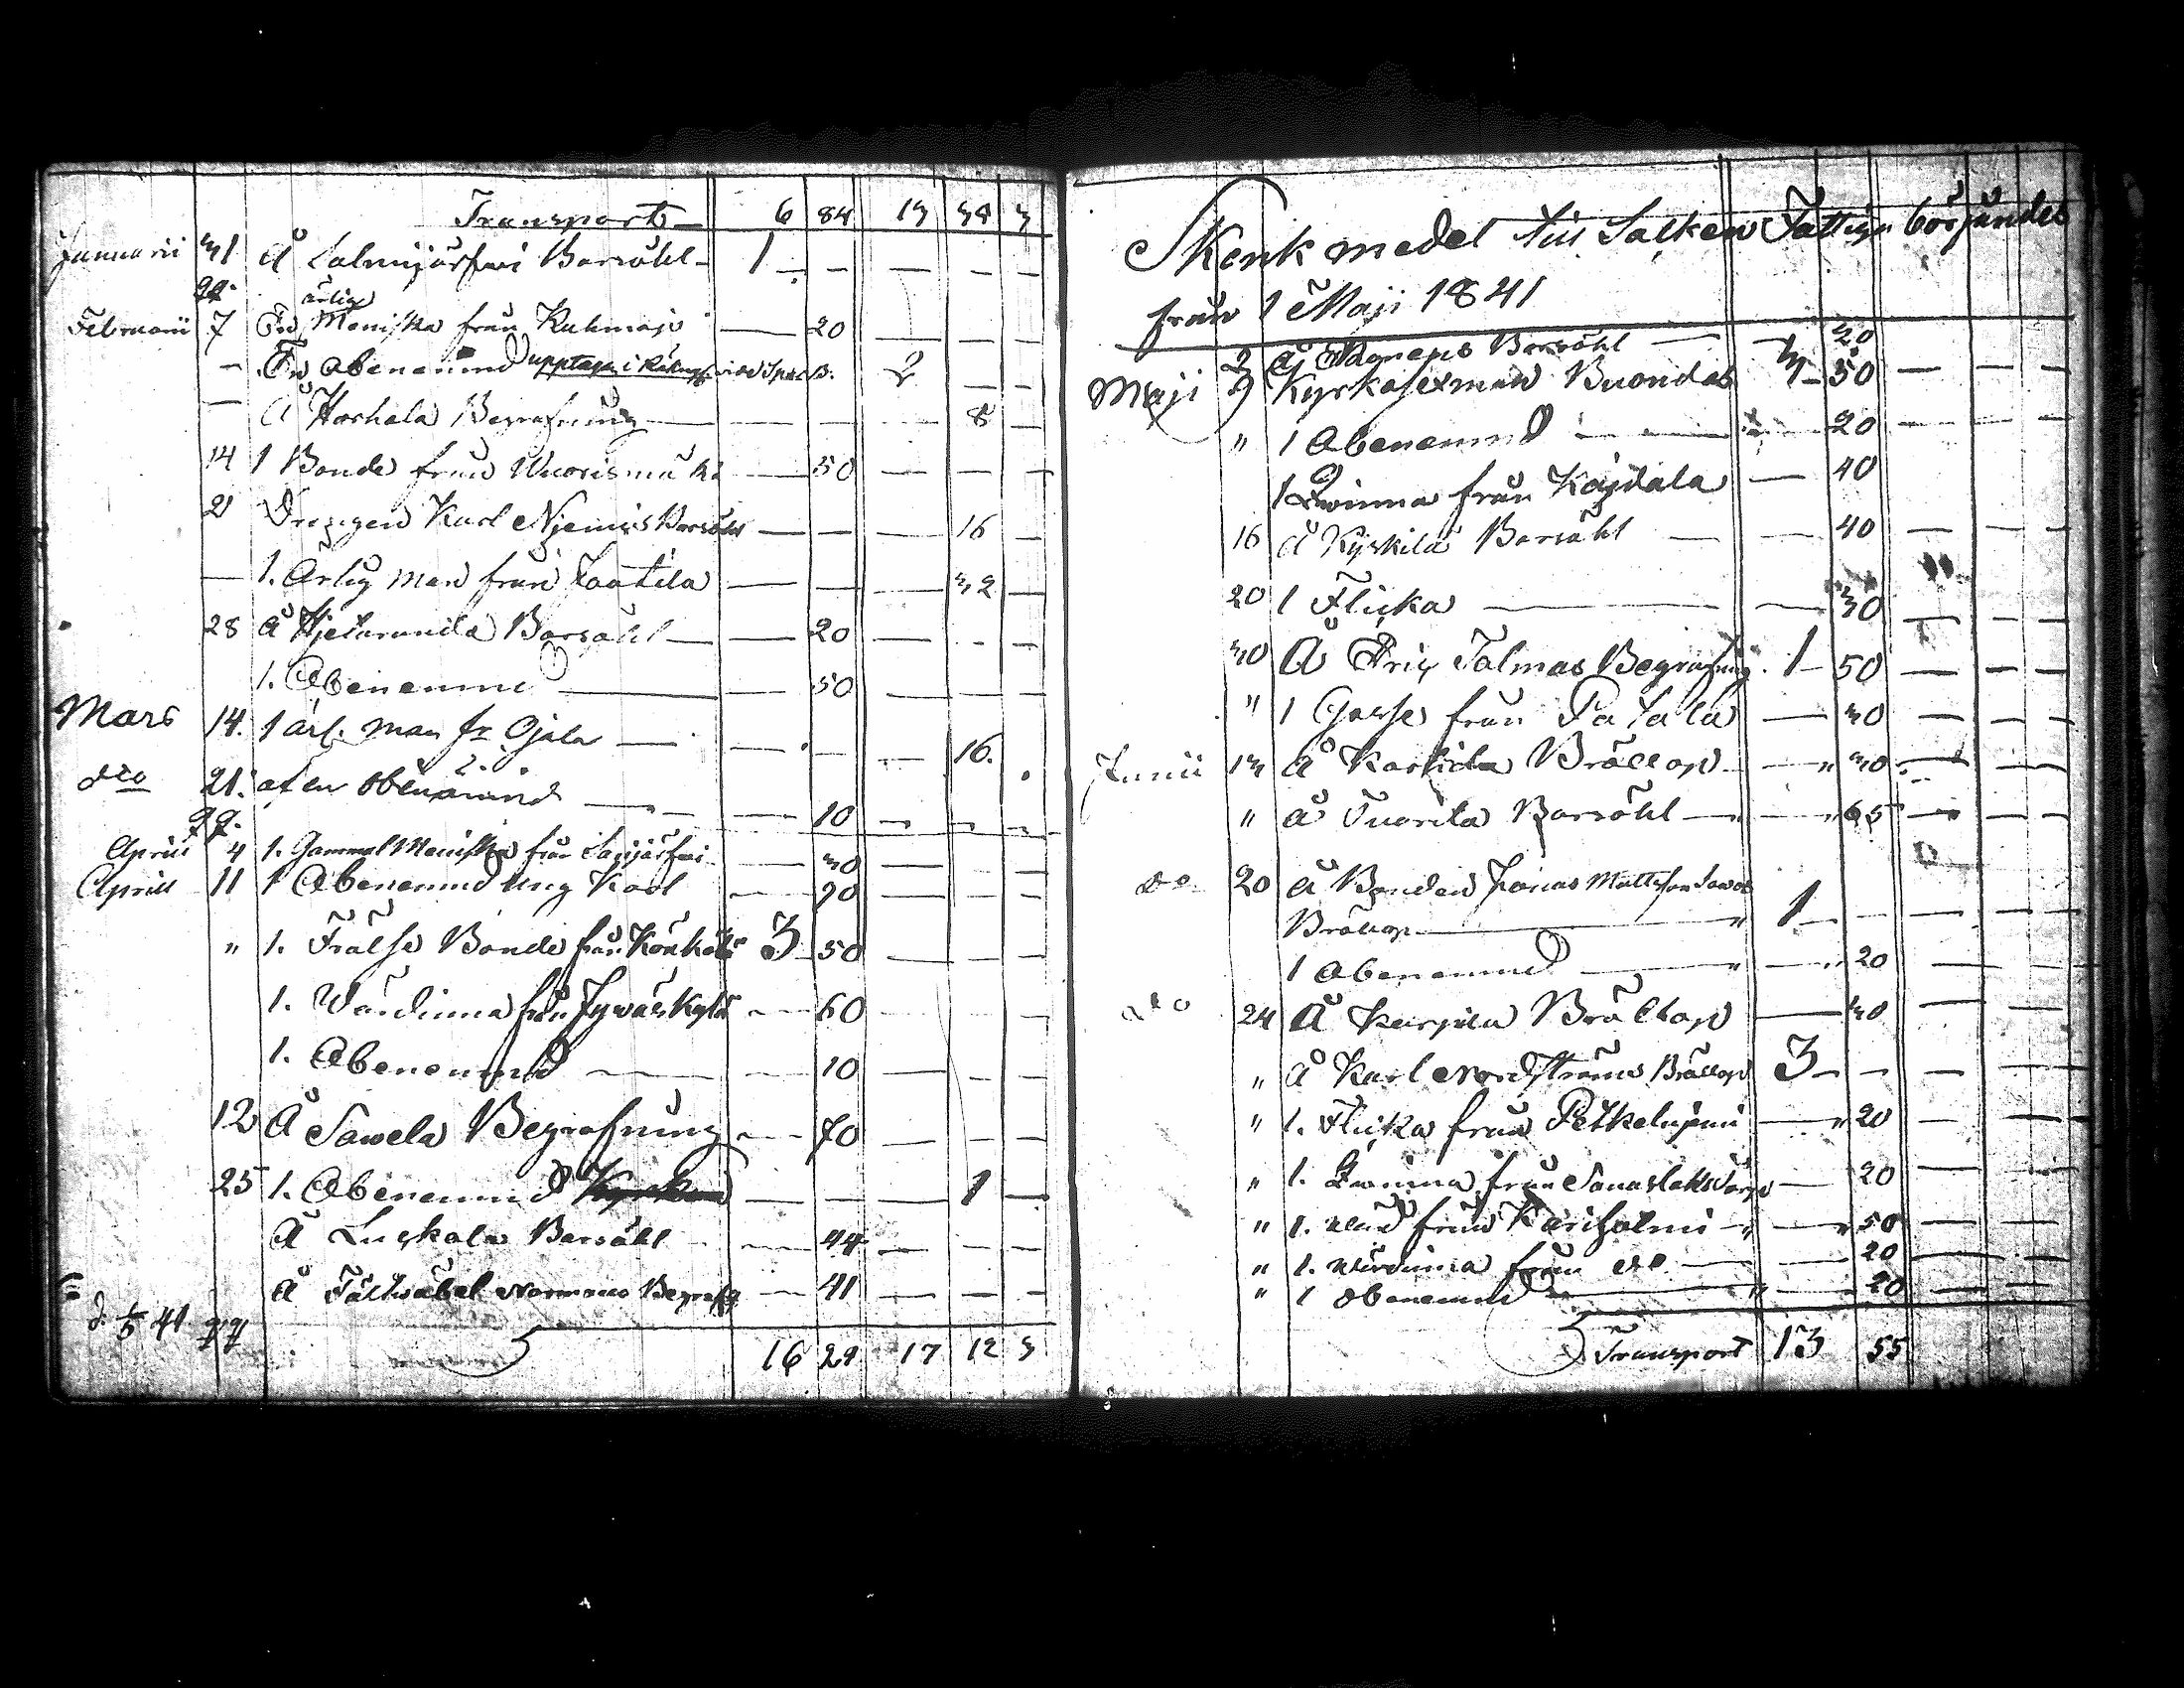 Transport 6 84 13 38 3
Januarii 31 Å Salmijärfvi Barsöhl 1 — — — — —
Februarii 7 En ärlig Meniska från Kuhmajs — 20 — — —
— En Obenemnd upptagen i Räkng 2 — —
— Å Horhala Begrafning — — — 8 —
14 1 Bonde från Wuorismäki — 50 — — —
21 Drengen Karl Niemis Barsöhl — — — 16 —
— 1. Ärlig man från Laatila — — — 32 —
28 Å Hjetaranda Barsöhl — 20 — — —
1. Obenemnd — 50 — — —
Mars 14. 1 ärl. man fr Ojala — — — 16.
dto 21. af en obenämnd — 10 — — —
Aprill 4 1. Gammal Meniska från Sarijärfvi — 30 — — —
Aprill 11 1 Obenemnd ung Karl — 20 — — —
" 1. Frälse Bonde från Könkölä 3 50 — — —
1. Värdinna från Jywäskylä — 60 — — —
1. Obenemnd — 10 — — —
12 Å Sawela Begrafning — 70 — — —
25 1. Obenemnd — — — 1 —
Å Luskala Barsöhl — 44 — — —
Å Fältwäbel Normans Begrafg — 41 — — —
d. 1/5 41
16 29 17 12 3
Skenk medel till Sakens Fattiga börjandes
från 1 Maji 1841
2 Å Barsöhl — 20
Maji 9 Kyrkosexman Buondas 3 50 — — —
" 1 Obenemnd — 20 — — —
1 Qvinna från Kajdala — 40
16 Å Kyrkilä Barsöhl — 40 — — —
20 1 Flicka — 30 — — —
30 Å Eriz Talmas Begrafning 1 50 — — —
" 1 Gosse från Pasala — 30 — — —
Junii 13 Å Karkila Bröllop — 30 — — —
" Å Tuorila Barsöhl — 65 — — —
do 20 Å Bonden Jonas Mattsson
Bröllop 1 — — — —
1 Obenemnd — 20 — — —
dto 24 Å Karpila Bröllop — 30 — — —
" Å Karl Nordströms Bröllop 3 — — — —
" 1. Flicka från Petkelniemi — 20 — — —
" 1. Qwinna från — 20 — — —
" 1. från Kariholmi — 50 — — —
" 1. Wärdinna från do — 20 — — —
" 1 Obenemnd — 20 — — —
Transport 13 55